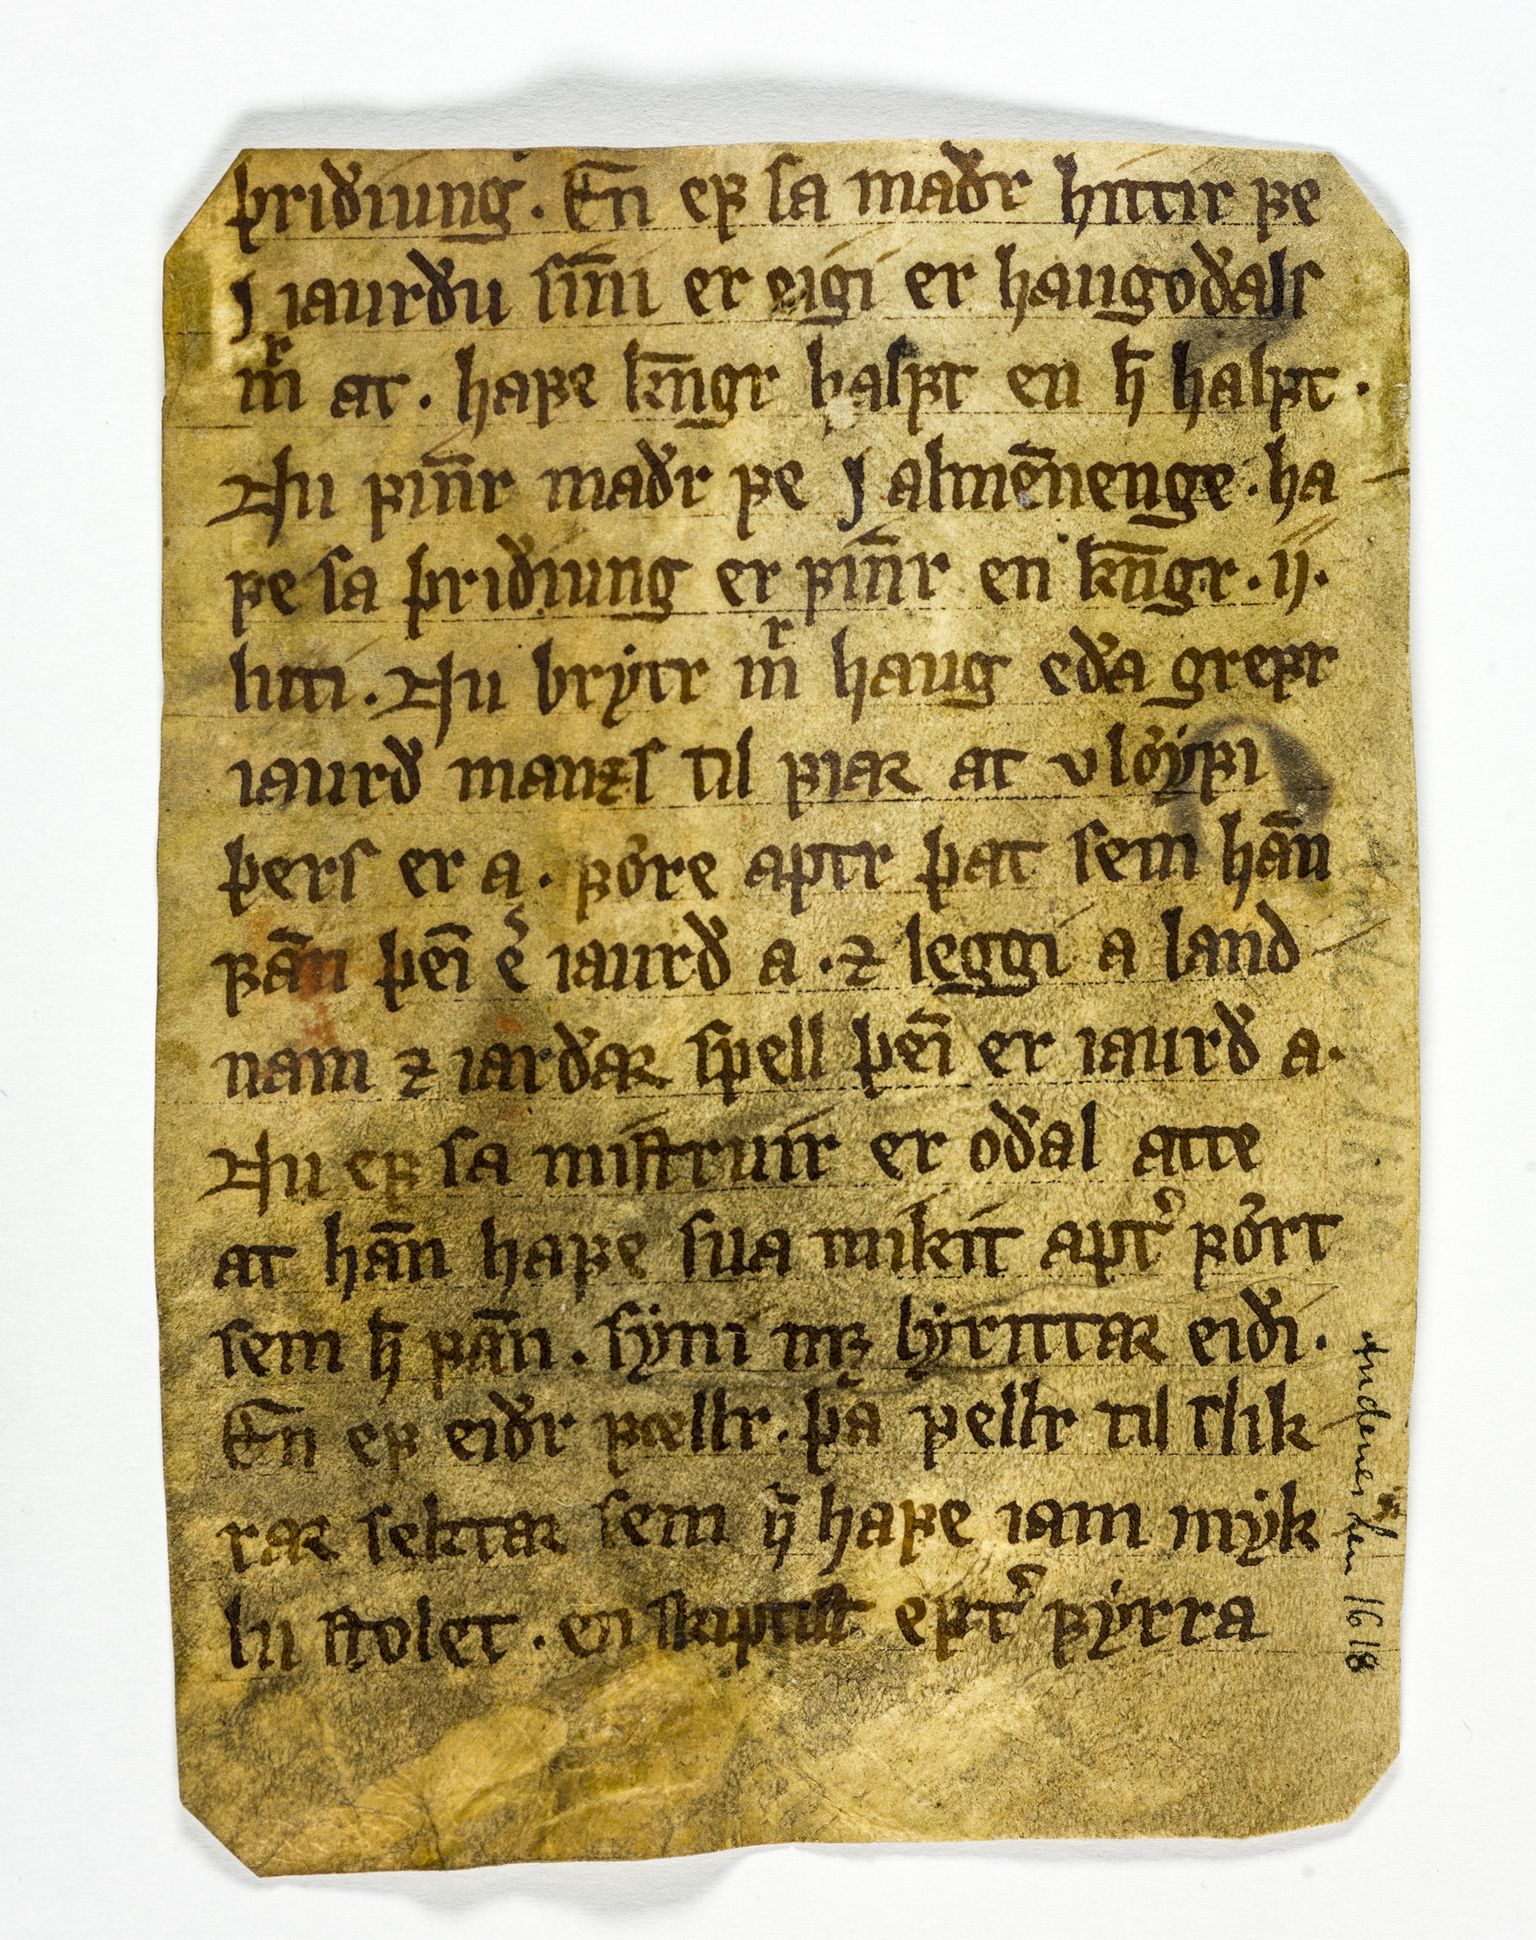 þriðiung. En ef sa maðr hittir fe
j iaurðu sinni er eigi er haugoðals
mr at. hafe kngr halft en h halft.
Nu finr maðr fe j almenenge. ha
fe sa þriðiung er finr en kngr. ij.
luti. Nu brytr mr haug eða grefr
iaurð manzs til fiar at vløyfi
þers er a. føre aptr þat sem han
fan þei er iaurð a. ⁊ leggi a land
nam ⁊ iarðar spell þei er iaurð a.
Nu ef sa mistruir er oðal atte
at han hafe sua mikit apt ført
sem h fan. syni mꝫ lyrittar eiði.
En ef eiðr fællr. þa fellr til slik
rar sektar sem h hafe iam myk
lu stolet. en skiptist eft fyrra
Andenes len 1618